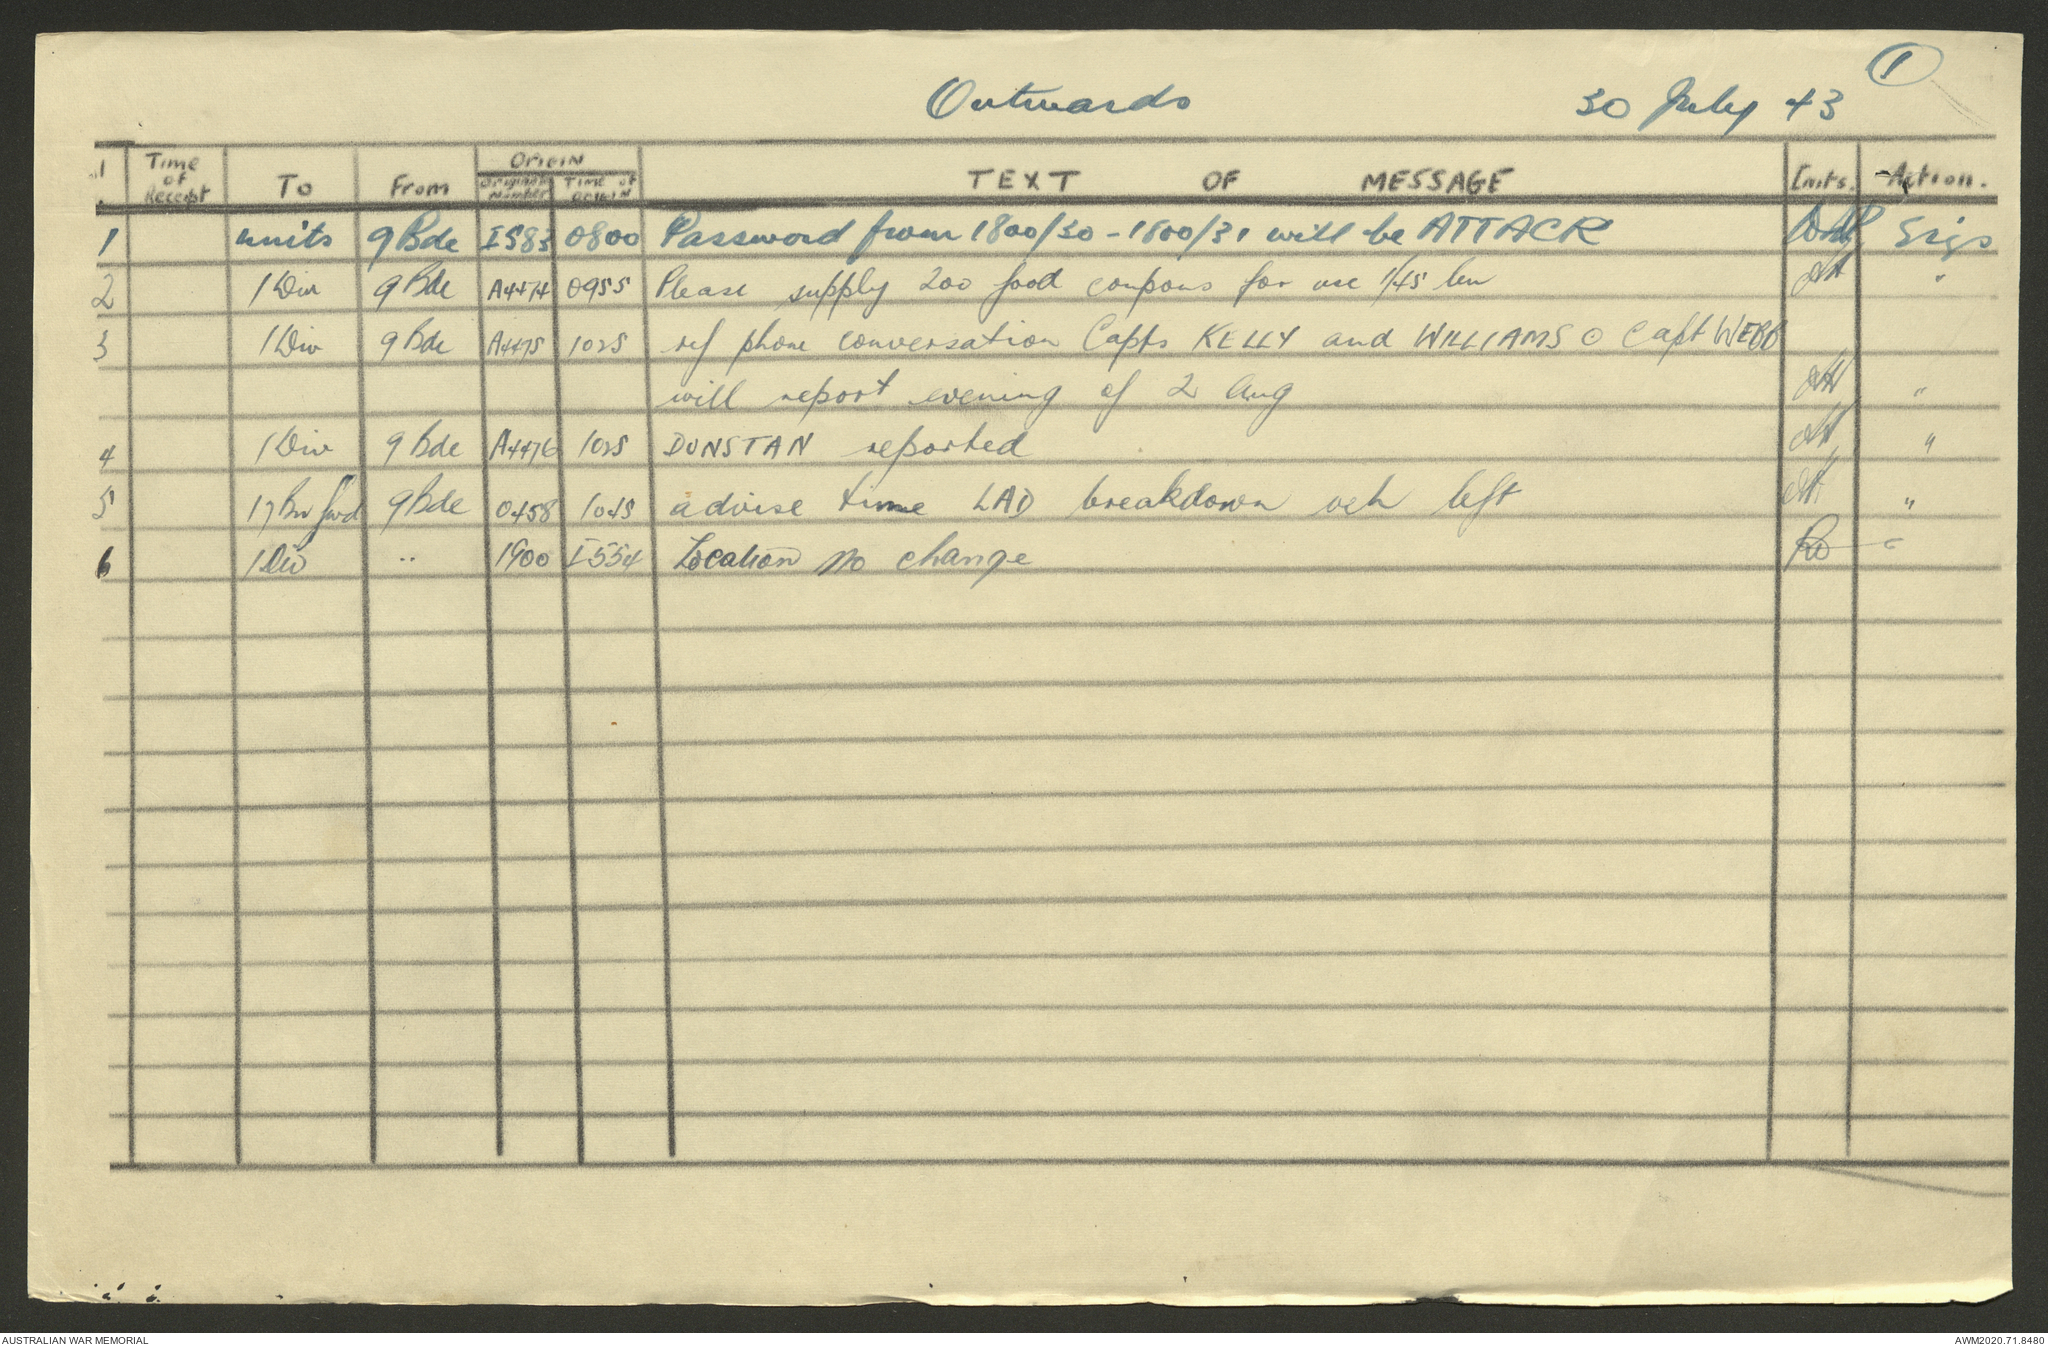 1
Outwards 30 July 43
Time of Receipt To From ORIGIN Originator's Number Time of Origin TEXT OF MESSAGE Inits. Action.
1 units 9 Bde I583 0800 Password from 1800/30 - 1800/31 will be ATTACK Sigs
2 1 Div 9 Bde A4474 0955 Please supply 200 food coupons for use 1/45 bn "
3 1 Div 9 Bde A4475 1025 ref phone conversation Capts KELLY and WILLIAMS ⊙ Capt WEBB
will report evening of 2 Aug "
4 1 Div 9 Bde A4476 1025 DUNSTAN reported "
5 17 Bn fwd 9 Bde O458 1045 advise time LAD breakdown veh left "
6 1 Div " 1900 I554 Location no change "
AUSTRALIAN WAR MEMORIAL AWM2020.71.8480